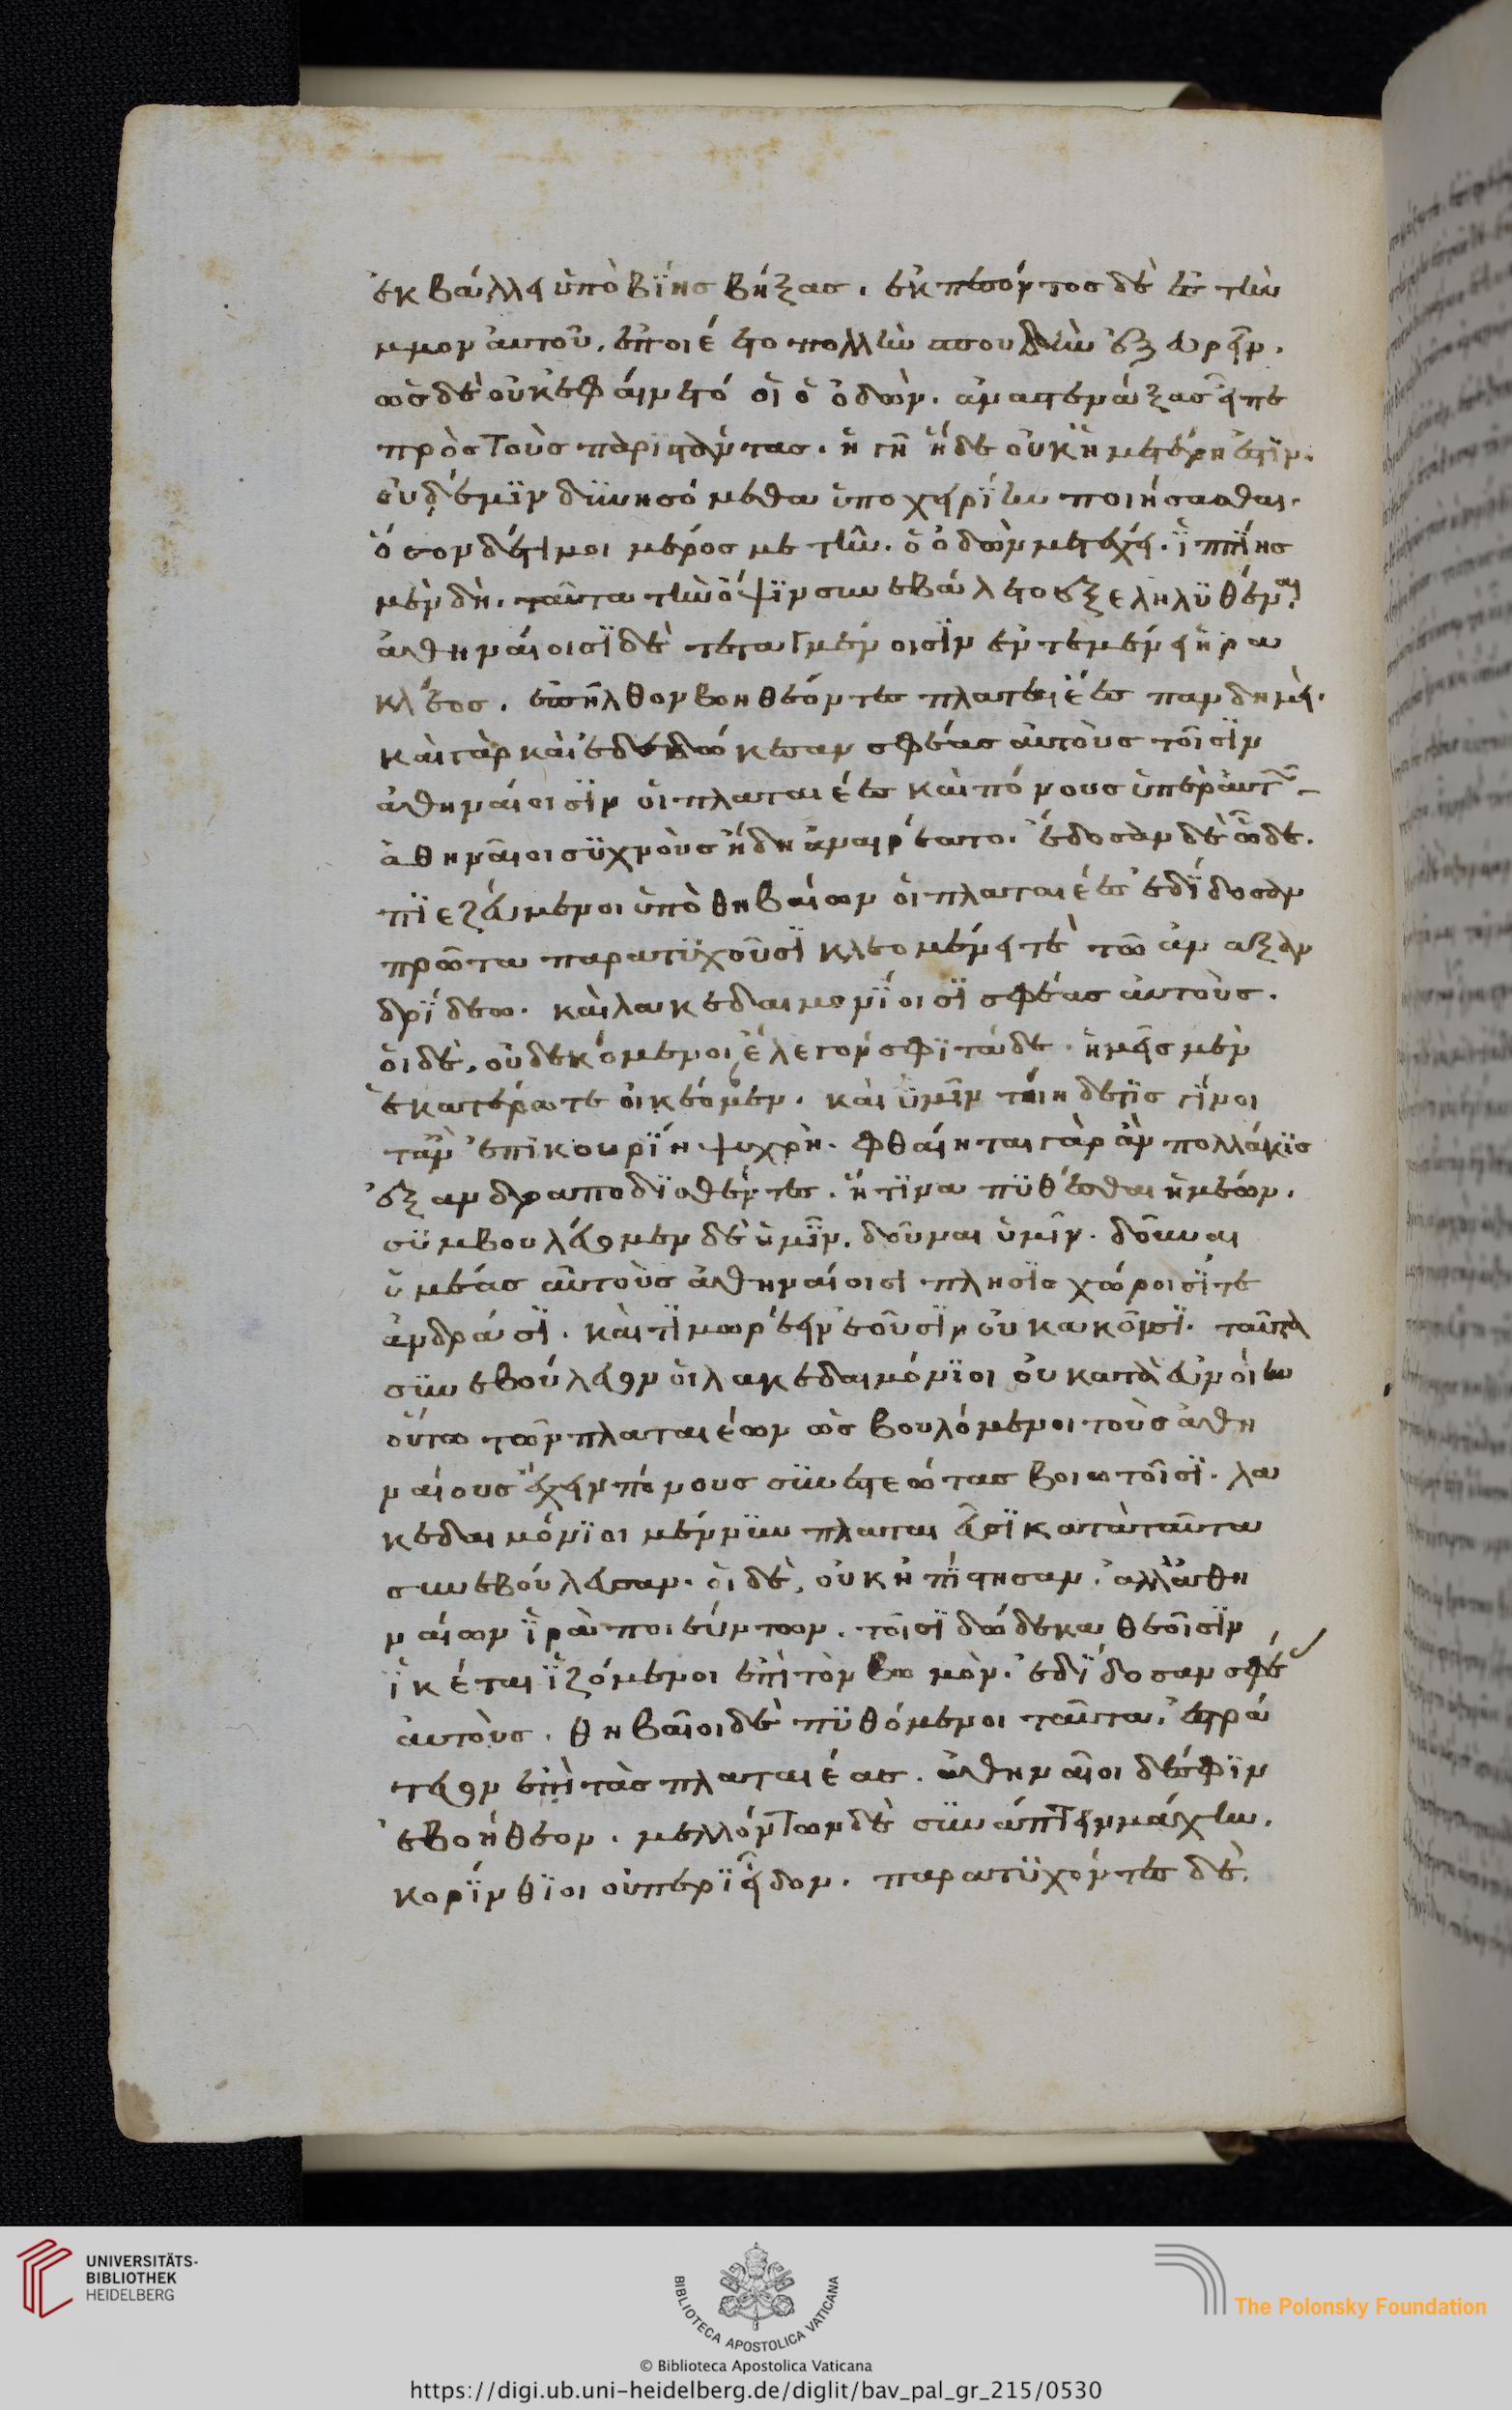 ἐκβάλλει ὑπὸ βΐης βήξας. ἐκπεσόντος δὲ ἐς τὴν
μμον ἀυτοῦ, ἐποιέετο πολλὴν σπουδὴν ἐξευρεῖν.
ὡς δὲ οὐκ ἐφαίνετό οἱ ὁ ὀδὼν. ἀναστενάξας εἶπε
πρὸς τοὺς παριστάντας. ἡ γῆ ἥδε οὐκ ἡμετέρη ἐστϊν.
οὐδέ μϊν δϋνησόμεθα ὑποχειρΐην ποιήσασθαι.
ὁσον δέ τι μοι μέρος μετῆν. ὁ ὀδὼν μετέχει. ἱππΐης
μὲν δὴ. ταῦτα τὴν ὄψϊν συνεβάλετο ἐξεληλϋθέναι.
ἀθηναίοισϊ δὲ τεταγμένοισϊν ἐν τεμένει ἡρα
κλέος. ἐπῆλθον βοηθέοντες πλαταιέες πανδημεί.
καὶ γὰρ καὶ ἐδεδώκεσαν σφέας ἀυτοὺς τοῖσϊν
ἀθηναίοισϊν οἱ πλαταιέες καὶ πόνους ὑπὲρ ἀυτῶν
ἀθηναῖοι συχνοὺς ἤδη ἀναιρέατο. ἔδοσαν δὲ ὧδε.
πϊεζεύμενοι ὑπὸ θηβαίων οἱ πλαταιέες ἐδΐδοσαν
πρῶτα παρατϋχοῦσϊ κλεομένεΐ τὲ τῶ ἀναξαν
δρΐδεω. καὶ λακεδαιμονΐοισϊ σφέας ἀυτοὺς.
οἱ δὲ, οὐ δεκόμενοι ἔλεγόν σφϊ τάδε. ἡμεῖς μὲν
ἑκατέρω τε οἰκέομεν. καὶ ὑμῖν τοιήδε τϊς γίνοι
τ' ἂν ἐπικουρΐη ψυχρὴ. φθαίηται γὰρ ἂν πολλάκϊς
ἐξανδραποδϊσθέντες. ἤ τϊνα πϋθέσθαι ἡμέων.
συμβουλεύομεν δὲ ὑμῖν. δοῦναι ὑμῖν. δοῦναι
ὑμέας αὐτοὺς ἀθηναίοισι πλησϊοχώροισΐ τε
ἀνδράσϊ. καὶ τϊμωρέειν ἐοῦσϊν οὐ κακοῖσϊ. ταῦτα
συνεβούλευον οἱ λακεδαιμόνϊοι οὐ κατὰ εὐνοίην
οὕτω τῶν πλαταιέων ὡς βουλόμενοι τοὺς ἀθη
ναίους ἔχειν πόνους συνεστεῶτας βοιωτοῖσϊ. λα
κεδαιμόνϊοι μέν νϋν πλαταιεῦσϊ κατὰ ταῦτα
συνεβούλευσαν. οἱ δὲ, οὐκ ἠπΐστησαν. ἀλλ' ἀθη
ναίων ἱρὰ ποιεύντων. τοῖσϊ δώδεκα θεοῖσϊν
ἱκέται ἱζόμενοι ἐπὶ τὸν βωμὸν. ἐδΐδοσαν σφέ
ἀυτοὺς. θηβαῖοι δὲ πϋθόμενοι ταῦτα. ἐστρά
τευον ἐπὶ τὰς πλαταιέας. ἀθηναῖοι δέ σφϊν
ἐβοήθεον. μελλόντων δὲ συνάπτειν μάχην.
κορΐνθϊοι οὐ περιεῖδον. παρατϋχόντες δὲ.
UNIVERSITÄTS-
BIBLIOTHEK
HEIDELBERG
BIBLIOTECA APOSTOLICA VATICANA
The Polonsky Foundation
© Biblioteca Apostolica Vaticana
https://digi.ub.uni-heidelberg.de/diglit/bav_pal_gr_215/0530